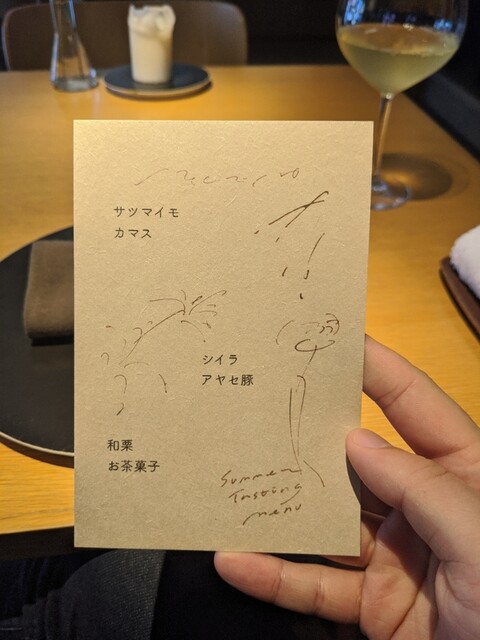 サツマイモ
カマス
シイラ
アヤセ豚
和栗
お茶菓子
Summer
Tasting
menu